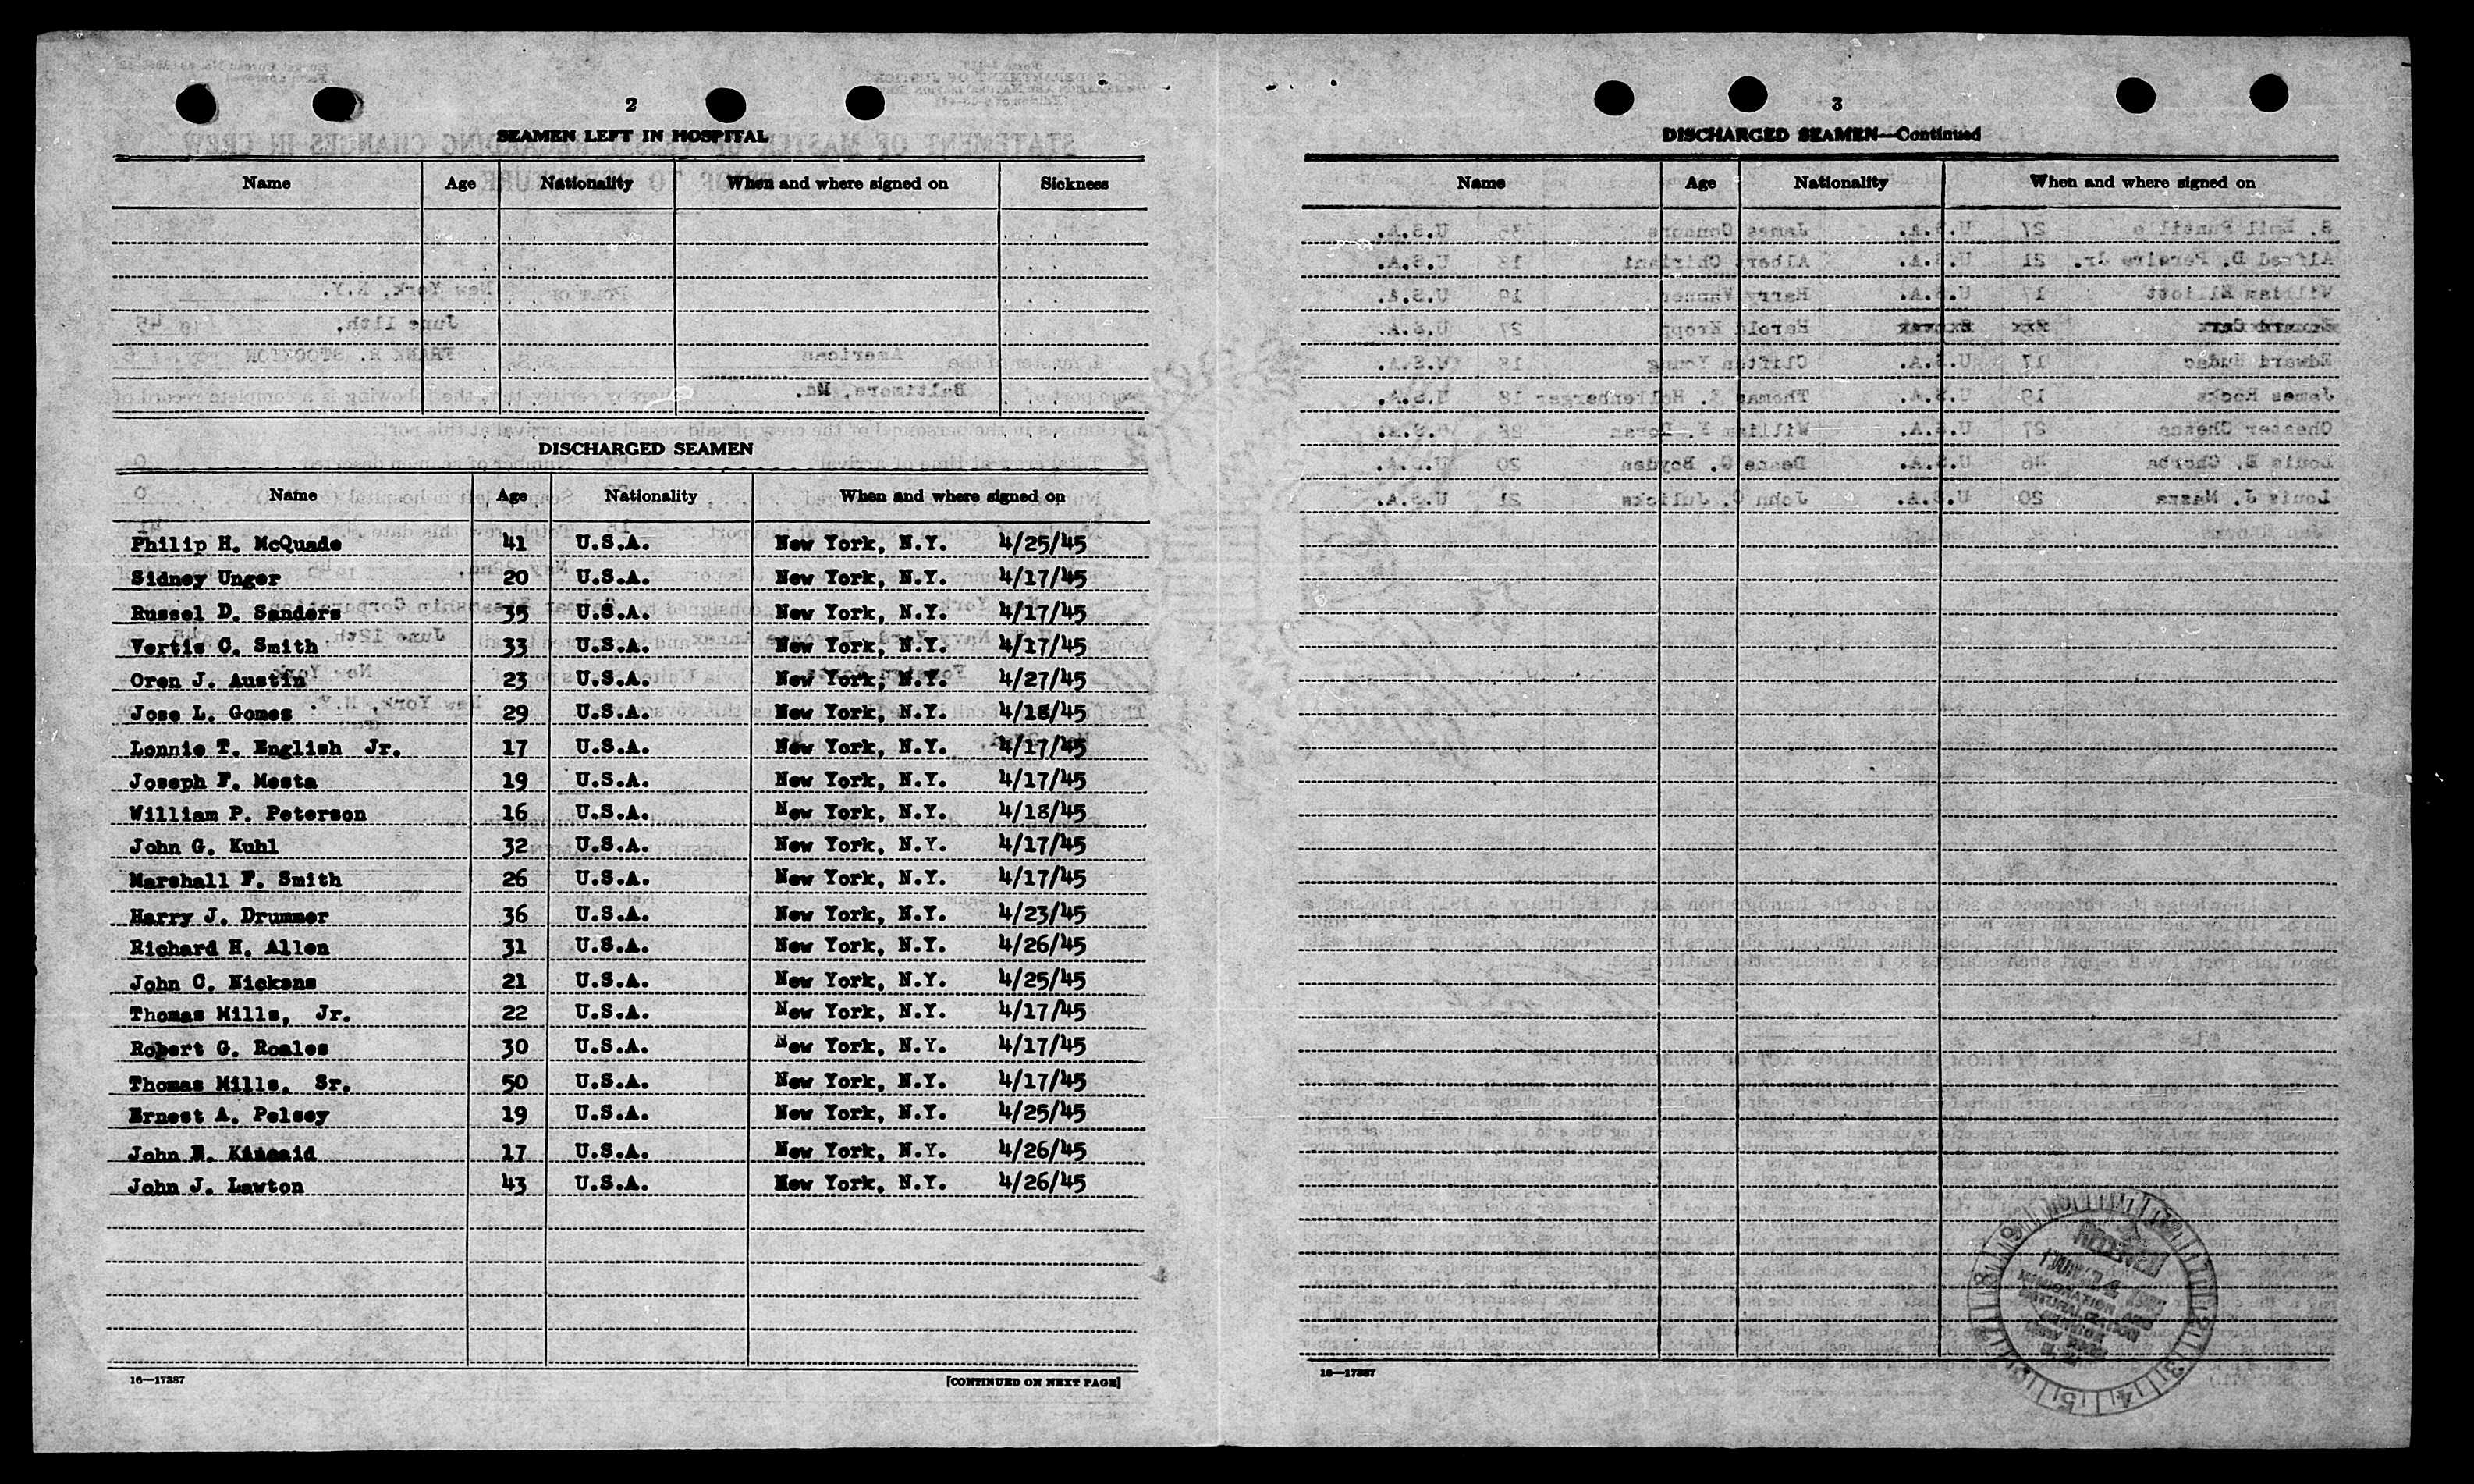 2
SEAMEN LEFT IN HOSPITAL
Name Age Nationality When and where signed on Sickness
DISCHARGED SEAMEN
Name Age Nationality When and where signed on
Philip H. McQuade 41 U.S.A. New York, N.Y. 4/25/45
Sidney Unger 20 U.S.A. New York, N.Y. 4/17/45
Russel D. Sanders 35 U.S.A. New York, N.Y. 4/17/45
Vertis C. Smith 33 U.S.A. New York, N.Y. 4/17/45
Oren J. Austin 23 U.S.A. New York, N.Y. 4/27/45
Jose L. Gomes 29 U.S.A. New York, N.Y. 4/18/45
Lonnie T. English Jr. 17 U.S.A. New York, N.Y. 4/17/45
Joseph F. Mesta 19 U.S.A. New York, N.Y. 4/17/45
William P. Peterson 16 U.S.A. New York, N.Y. 4/18/45
John G. Kuhl 32 U.S.A. New York, N.Y. 4/17/45
Marshall F. Smith 26 U.S.A. New York, N.Y. 4/17/45
Harry J. Drummer 36 U.S.A. New York, N.Y. 4/23/45
Richard H. Allen 31 U.S.A. New York, N.Y. 4/26/45
John C. Nickens 21 U.S.A. New York, N.Y. 4/25/45
Thomas Mills, Jr. 22 U.S.A. New York, N.Y. 4/17/45
Robert G. Roales 30 U.S.A. New York, N.Y. 4/17/45
Thomas Mills, Sr. 50 U.S.A. New York, N.Y. 4/17/45
Ernest A. Pelsey 19 U.S.A. New York, N.Y. 4/25/45
John E. Kincaid 17 U.S.A. New York, N.Y. 4/26/45
John J. Lawton 43 U.S.A. New York, N.Y. 4/26/45
16—17387 [CONTINUED ON NEXT PAGE]
3
DISCHARGED SEAMEN—Continued
Name Age Nationality When and where signed on
RECEIVED
IMMIGRATION AND
NATURALIZATION
16—17387